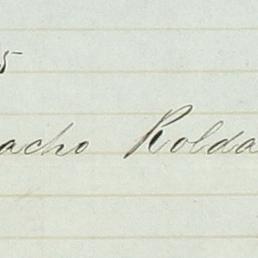 5
acho Rolda